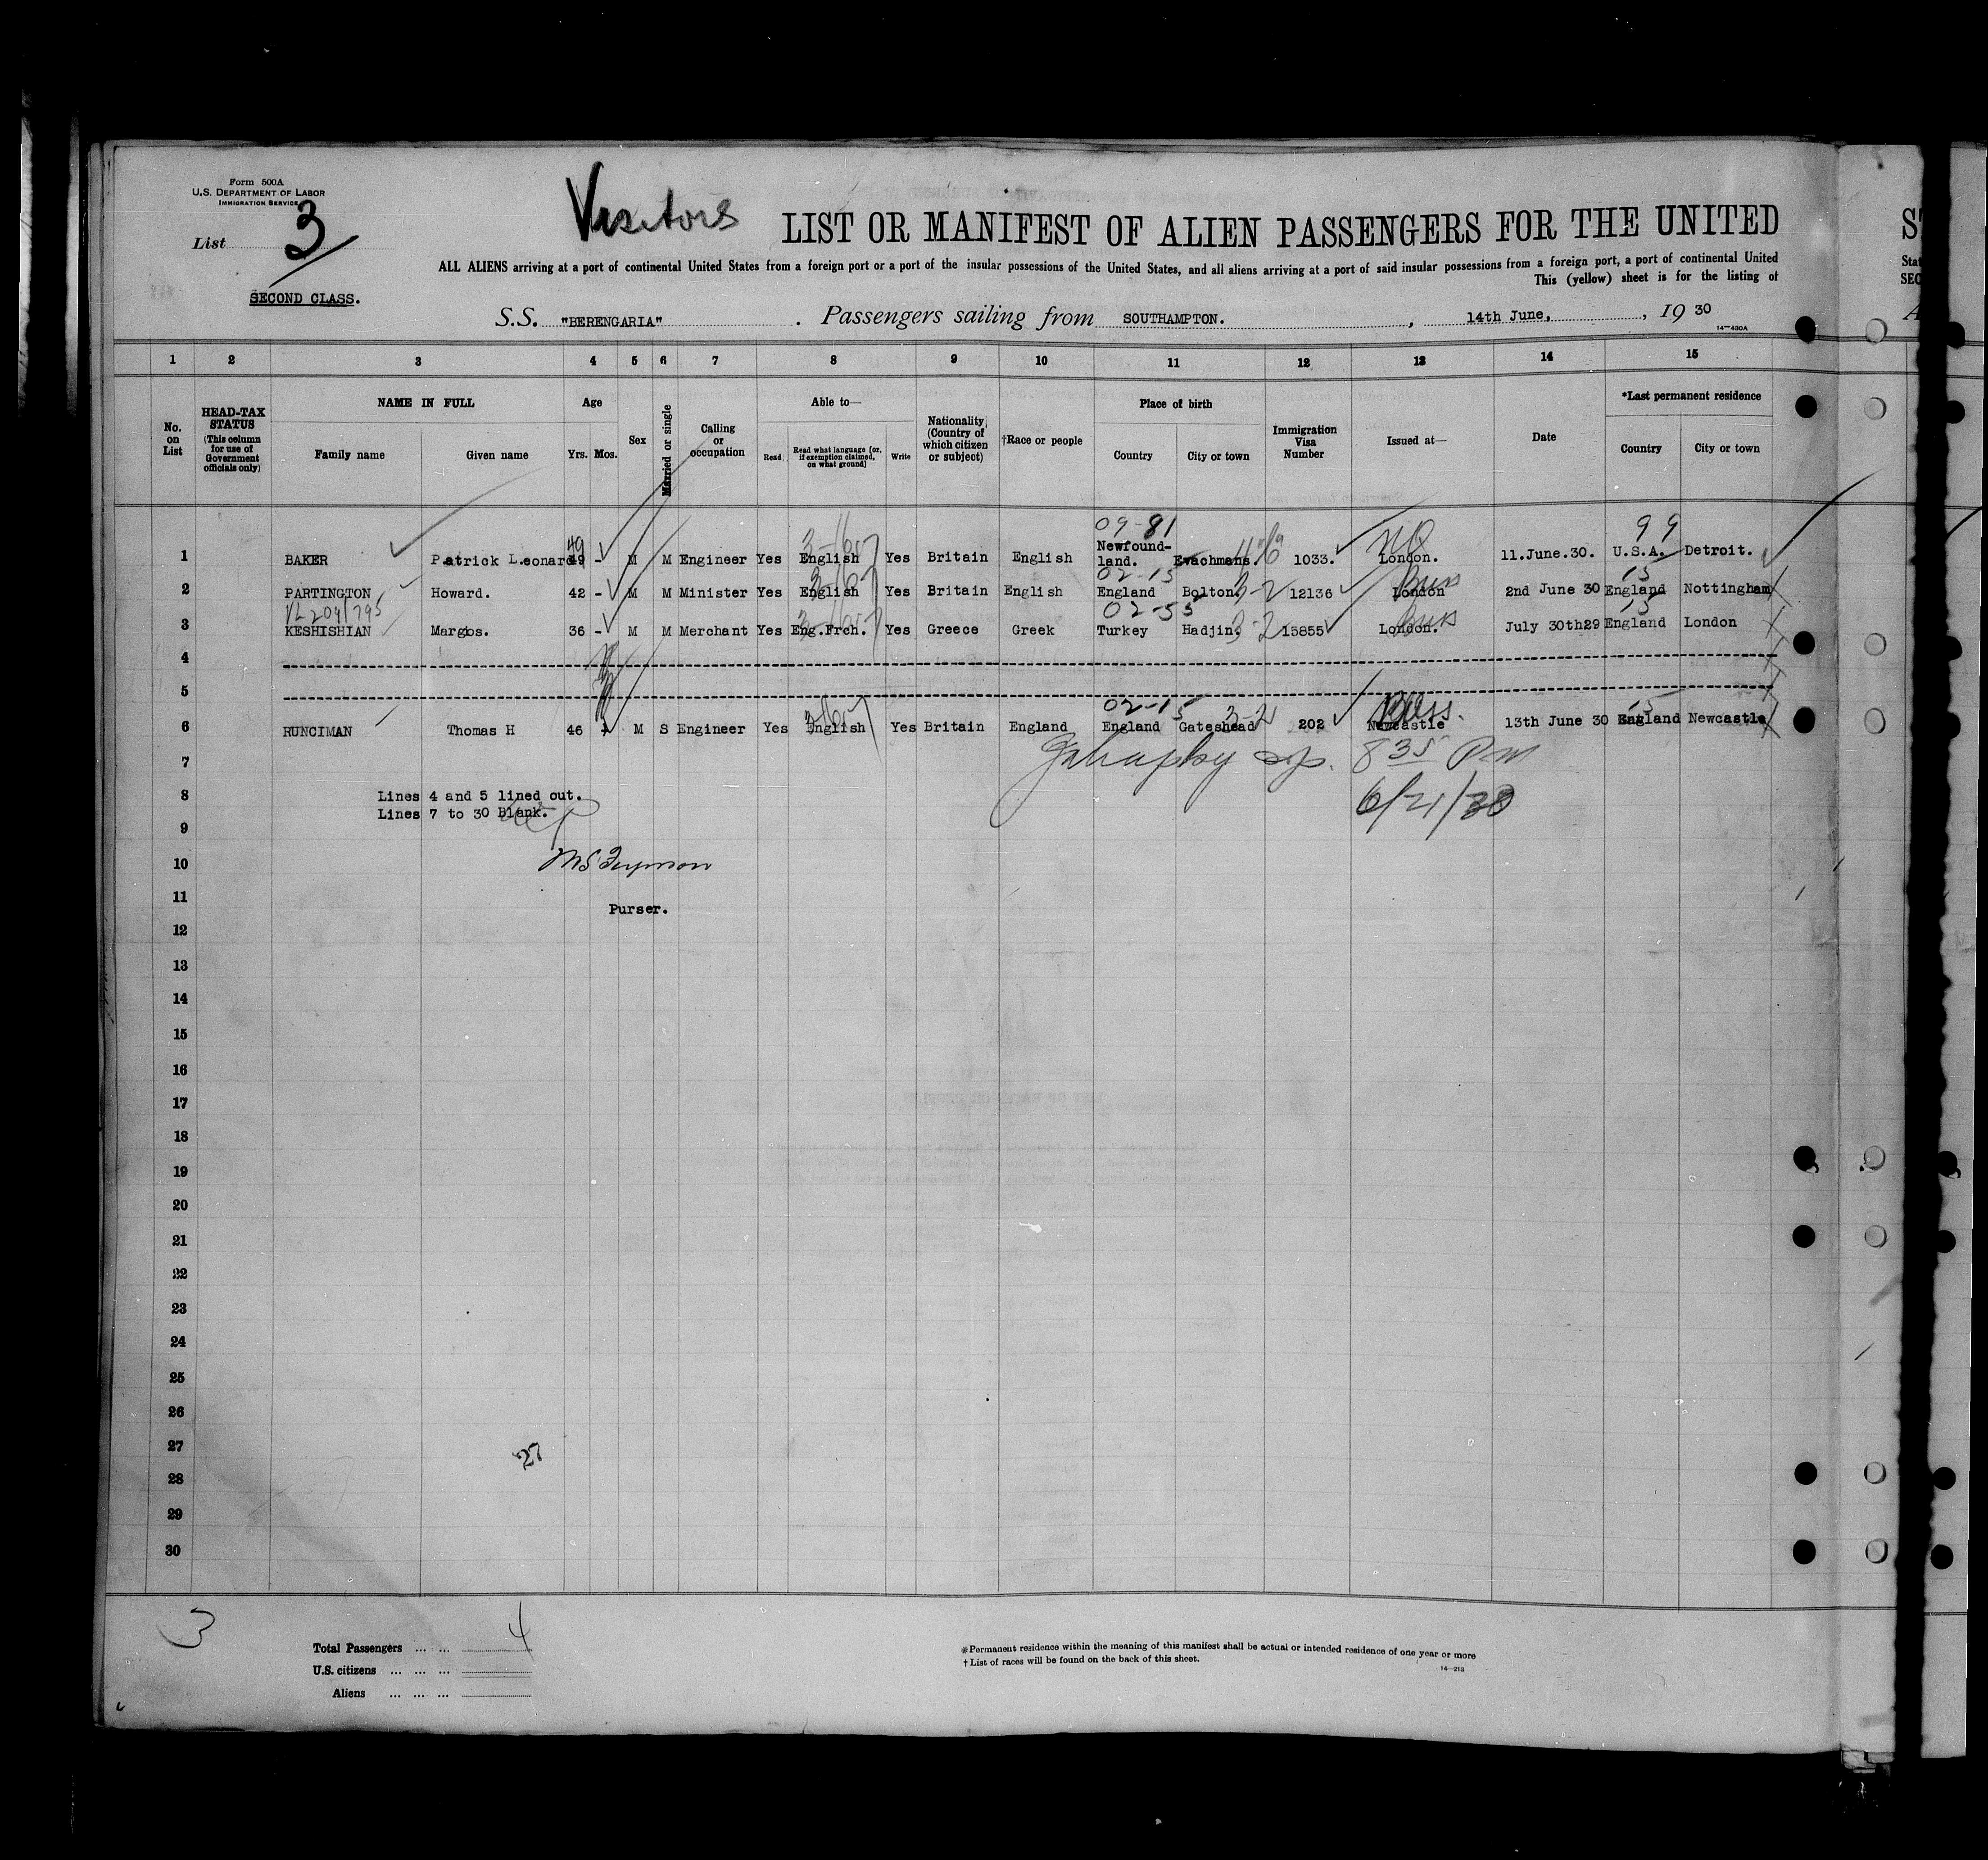 Form 500A
U.S. DEPARTMENT OF LABOR
IMMIGRATION SERVICE
List 3
Visitors
LIST OR MANIFEST OF ALIEN PASSENGERS FOR THE UNITED
ALL ALIENS arriving at a port of continental United States from a foreign port or a port of the insular possessions of the United States, and all aliens arriving at a port of said insular possessions from a foreign port, a port of continental United
This (yellow) sheet is for the listing of
SECOND CLASS.
S.S. "BERENGARIA" . Passengers sailing from SOUTHAMPTON. , 14th June, , 19 30
14—430A
1 2 3 4 5 6 7 8 9 10 11 12 13 14 15
No. on List
HEAD-TAX STATUS (This column for use of Government officials only)
NAME IN FULL
Family name Given name
Age
Yrs. Mos.
Sex
Married or single
Calling or occupation
Able to—
Read Read what language (or, if exemption claimed, on what ground) Write
Nationality (Country of which citizen or subject)
†Race or people
Place of birth
Country City or town
Immigration Visa Number
Issued at—
Date
*Last permanent residence
Country City or town
09-81 99
49
1 BAKER Patrick Leonard 49 - M M Engineer Yes English Yes Britain English Newfound-land. 1033. London. 11.June.30. U.S.A. Detroit.
02-15 15
2 PARTINGTON Howard. 42 - M M Minister Yes English Yes Britain English England Bolton. 3-2 12136 London 2nd June 30 England Nottingham
VL204/795 02-55 15
3 KESHISHIAN Margos. 36 - M M Merchant Yes Eng.Frch. Yes Greece Greek Turkey Hadjin. 3-2 15855 London. July 30th29 England London
4
5
02-15 15
6 RUNCIMAN Thomas H 46 M S Engineer Yes English Yes Britain England England Gateshead 3-2 202 Newcastle 13th June 30 England Newcastle
7
8 35 PM
8 Lines 4 and 5 lined out.
Lines 7 to 30 Blank.
6/21/30
9
10
11 Purser.
12
13
14
15
16
17
18
19
20
21
22
23
24
25
26
27
27
28
29
30
3
Total Passengers ... ... 4
U.S. citizens ... ... ...
Aliens ... ... ...
*Permanent residence within the meaning of this manifest shall be actual or intended residence of one year or more
†List of races will be found on the back of this sheet.
14—213